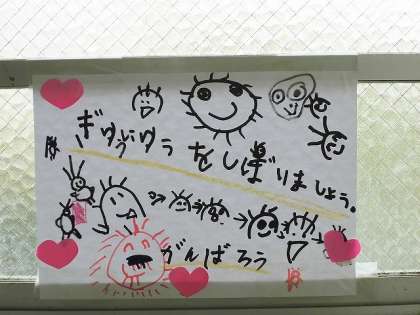 ぎゅうにゅうをしぼりましょう。
がんばろう